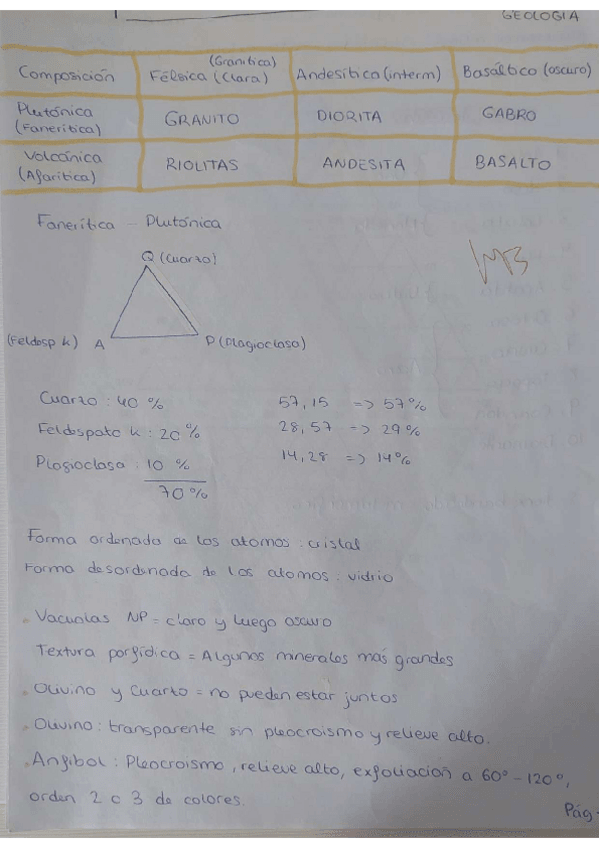 GEOLOGIA
Composición
(Granitica)
Félsica (Clara)
Andesitica (interm)
Basáltico (oscuro)
Plutónica
(Fanerítica)
GRANITO
DIORITA
GABRO
Volcánica
(Afaritica)
RIOLITAS
ANDESITA
BASALTO
Fanerítica - Plutónica
Q (Cuarzo)
(Feldesp k) A
P (Plagioclasa)
Cuarzo : 40 %
57,15 => 57%
Feldespato k : 20 %
28,57 => 29 %
Plagioclasa : 10 %
14,28 => 14%
70 %
Forma ordenada de los atomos : cristal
Forma desordenada de los atomos : vidrio
. Vacuolas NP = claro y luego oscuro
Textura porfídica = Algunos minerales más grandes
. Olivino y Cuarzo = no pueden estar juntos
. Olivino : transparente sin pleocroismo y relieve alto.
. Anfibol : Pleocroismo, relieve alto, exfoliación a 60° - 120°,
orden 2 o 3 de colores.
Pág